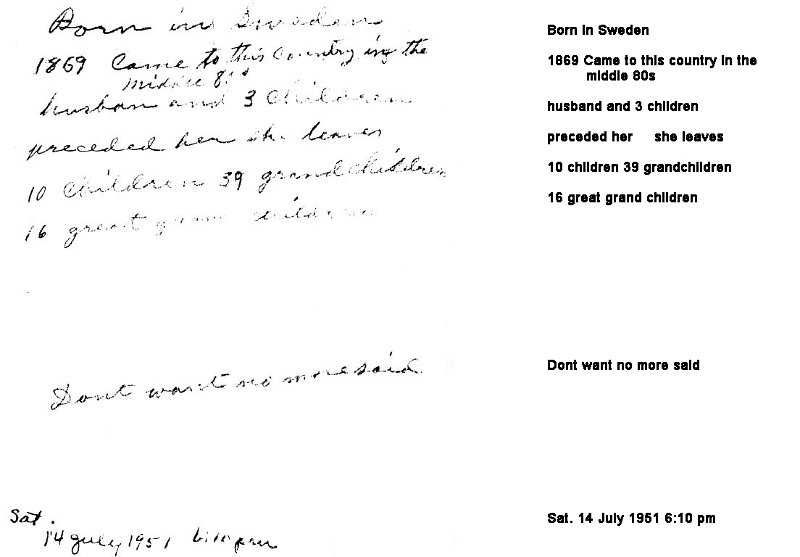 Born in Sweden
1869 Came to this Country in the
middle 80s
husban and 3 Children
preceded her she leaves
10 Children 39 grandchildren
16 great grand children
Dont want no more said
Sat.
14 July 1951 6:10 pm
Born in Sweden
1869 Came to this country in the
middle 80s
husband and 3 children
preceded her she leaves
10 children 39 grandchildren
16 great grand children
Dont want no more said
Sat. 14 July 1951 6:10 pm